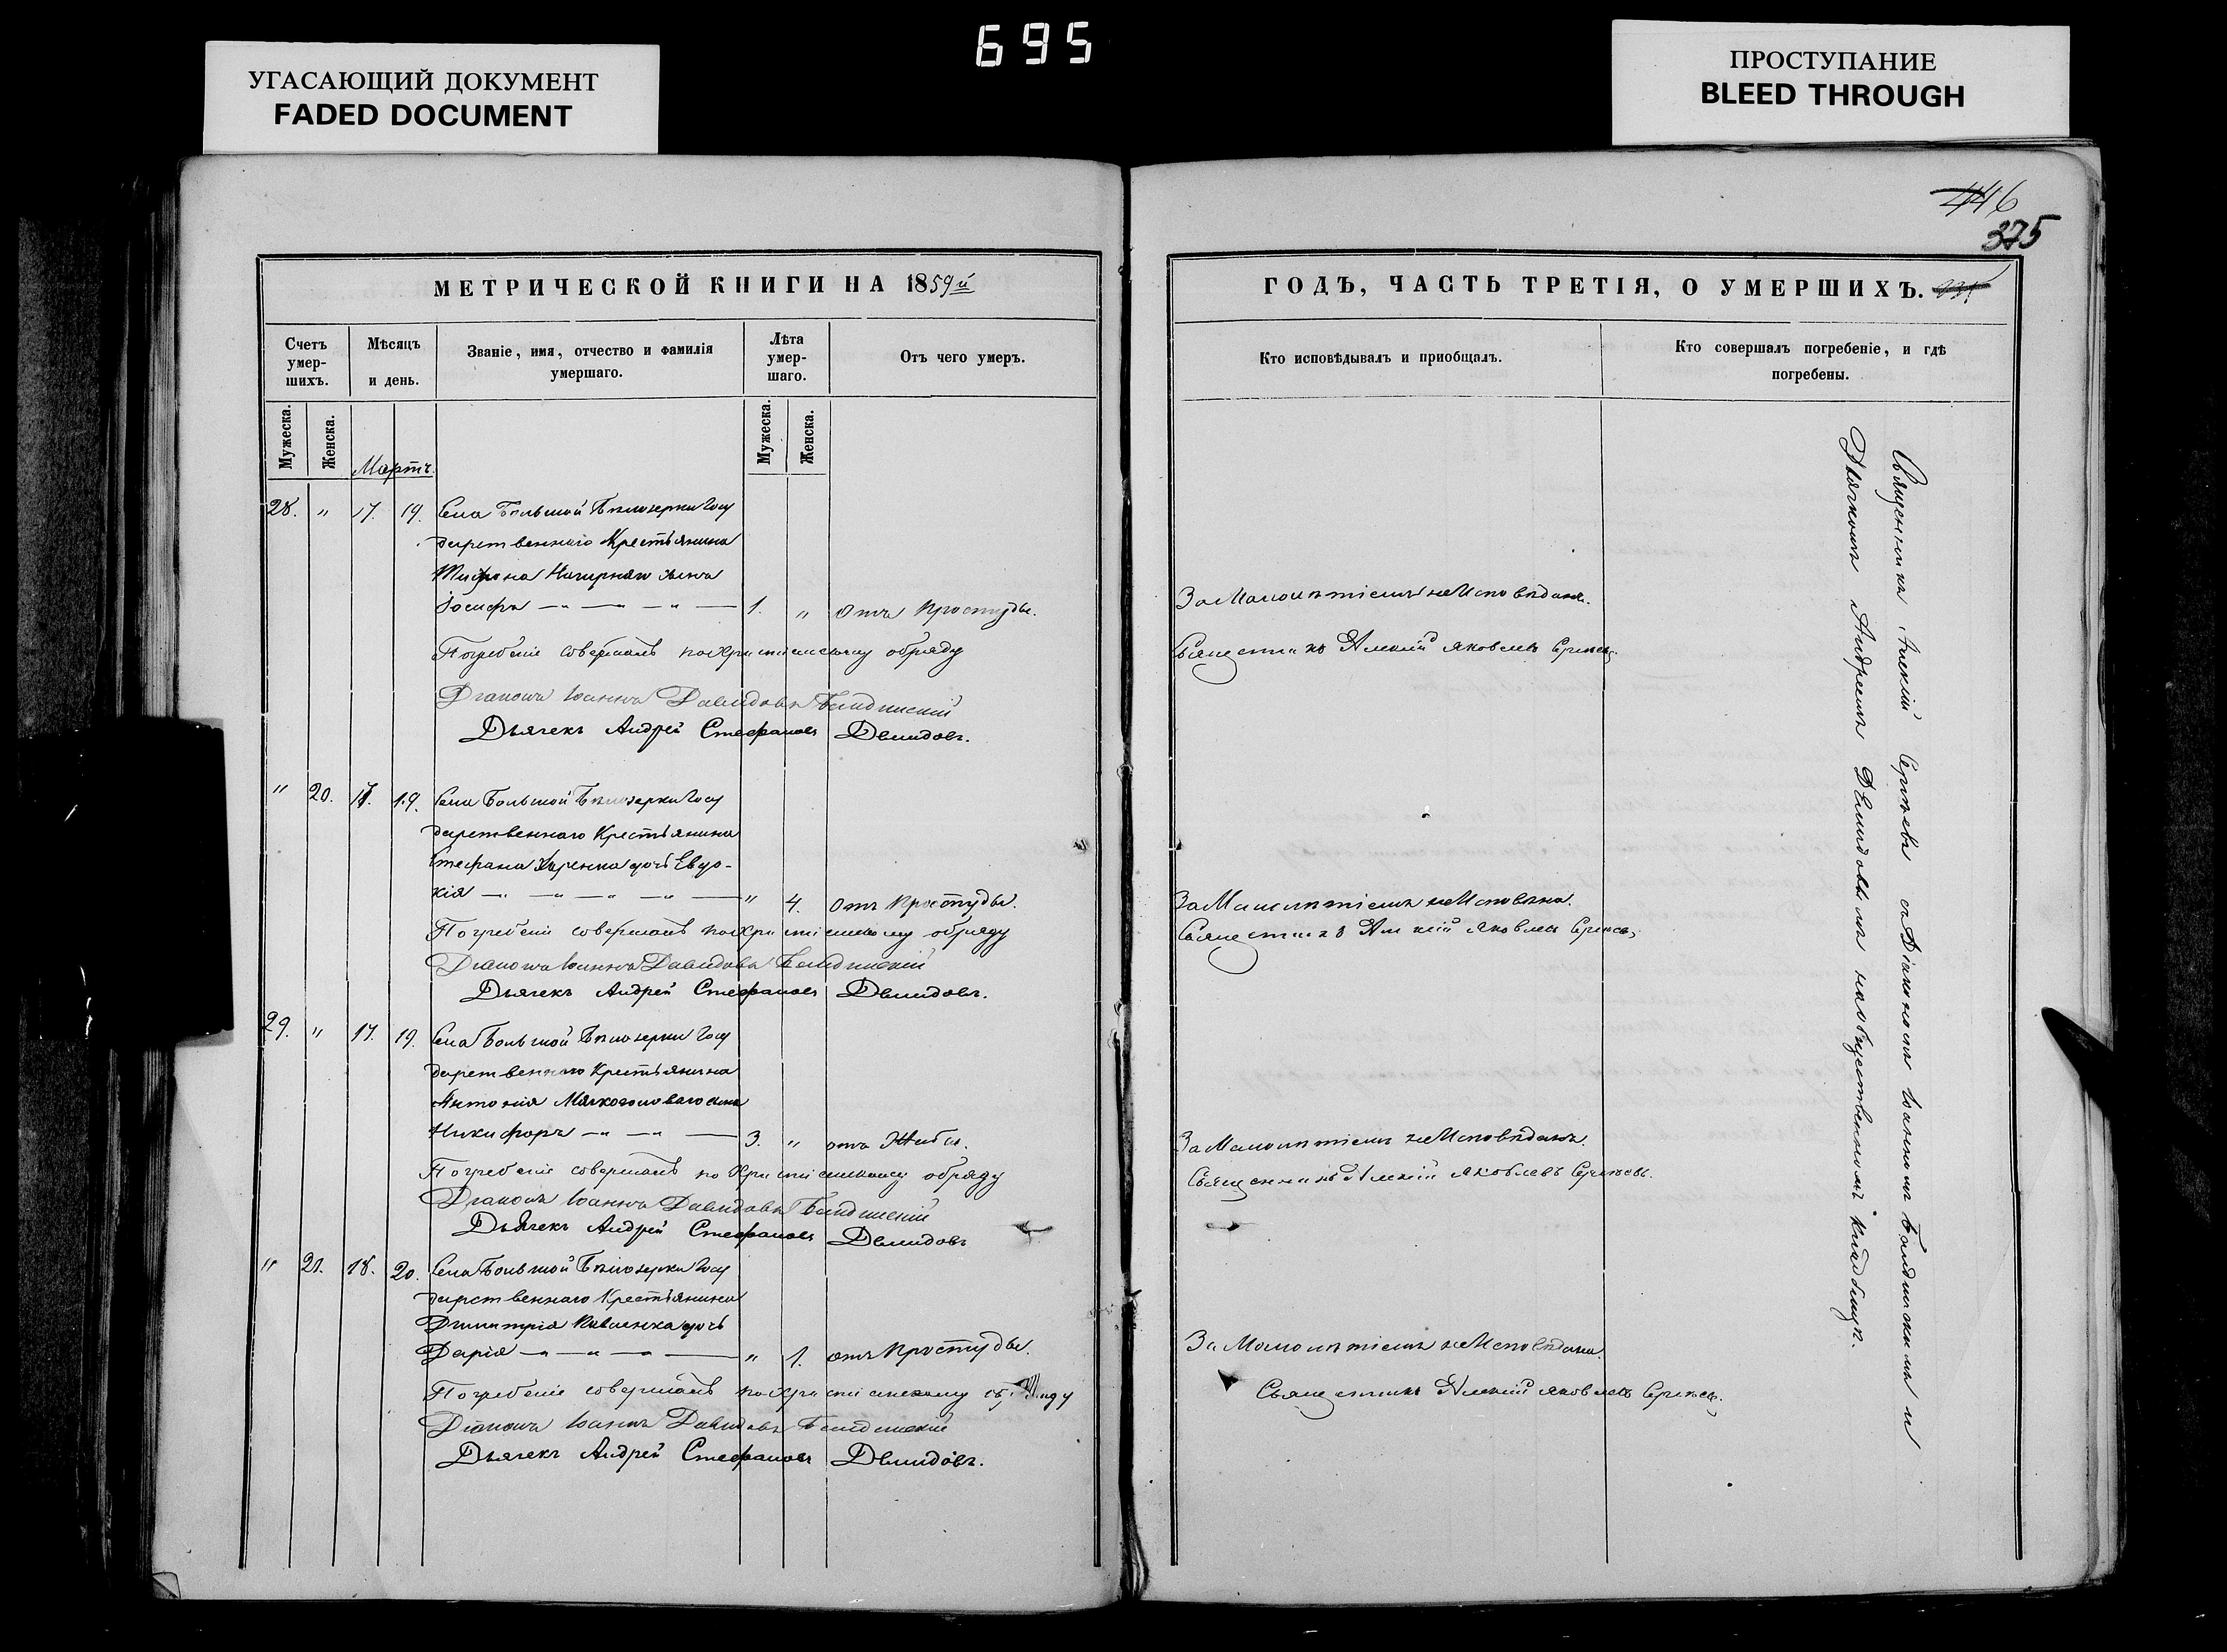 УГАСАЮЩИЙ ДОКУМЕНТ
FADED DOCUMENT
695
ПРОСТУПАНИЕ
BLEED THROUGH
446
375
МЕТРИЧЕСКОЙ КНИГИ НА 1859й
Счетъ умер-шихъ.
Мѣсяцъ и день.
Званіе, имя, отчество и фамилія умершаго.
Лѣта умер-шаго.
Отъ чего умеръ.
Мужеска.
Женска.
Мартъ.
Мужеска.
Женска.
28. " 17. 19. Села Большой Бѣлозерки Госу
дарственнаго Крестьянина
сына
Іосифъ 1. " Отъ простуды.
Погребеніе совершалъ по Христіанскому обряду
Діаконъ Іоаннъ Давидовъ
Дьячекъ Андрей Стефановъ Демидовъ.
" 20. 17. 19. Села Большой Бѣлозерки Госу
дарственнаго Крестьянина
Стефана дочь Евдо-
кія " 4. Отъ простуды.
Погребеніе совершалъ по Христіанскому обряду
Діаконъ Іоаннъ Давидовъ
Дьячекъ Андрей Стефановъ Демидовъ.
29. " 17. 19. Села Большой Бѣлозерки Госу
дарственнаго Крестьянина
Антонія Мягкоголоваго сынъ
Никифоръ 3. " отъ
Погребеніе совершалъ по Христіанскому обряду
Діаконъ Іоаннъ Давидовъ
Дьячекъ Андрей Стефановъ Демидовъ
" 21. 18. 20. Села Большой Бѣлозерки Госу
дарственнаго Крестьянина
Димитрія дочь
Дарія " 1. отъ простуды.
Погребеніе совершалъ по Христіанскому обряду
Діаконъ Іоаннъ Давидовъ
Дьячекъ Андрей Стефановъ Демидовъ.
ГОДЪ, ЧАСТЬ ТРЕТІЯ, О УМЕРШИХЪ.
Кто исповѣдывалъ и пріобщалъ.
Кто совершалъ погребеніе, и гдѣ погребены.
За Малолѣтіемъ не Исповѣданъ.
Священникъ Алексій Яковлевъ Сергѣевъ
За Малолѣтіемъ не
Священникъ Алексій Яковлевъ Сергѣевъ
За Малолѣтіемъ не Исповѣданъ.
Священникъ Алексій Яковлевъ Сергѣевъ.
За Малолѣтіемъ не Исповѣдана.
Священникъ Алексій Яковлевъ Сергѣевъ
Священникъ Алексій Сергѣевъ съ Діакономъ Іоанномъ и
Дьячкомъ Андреемъ Демидовымъ на общественномъ кладбищѣ.